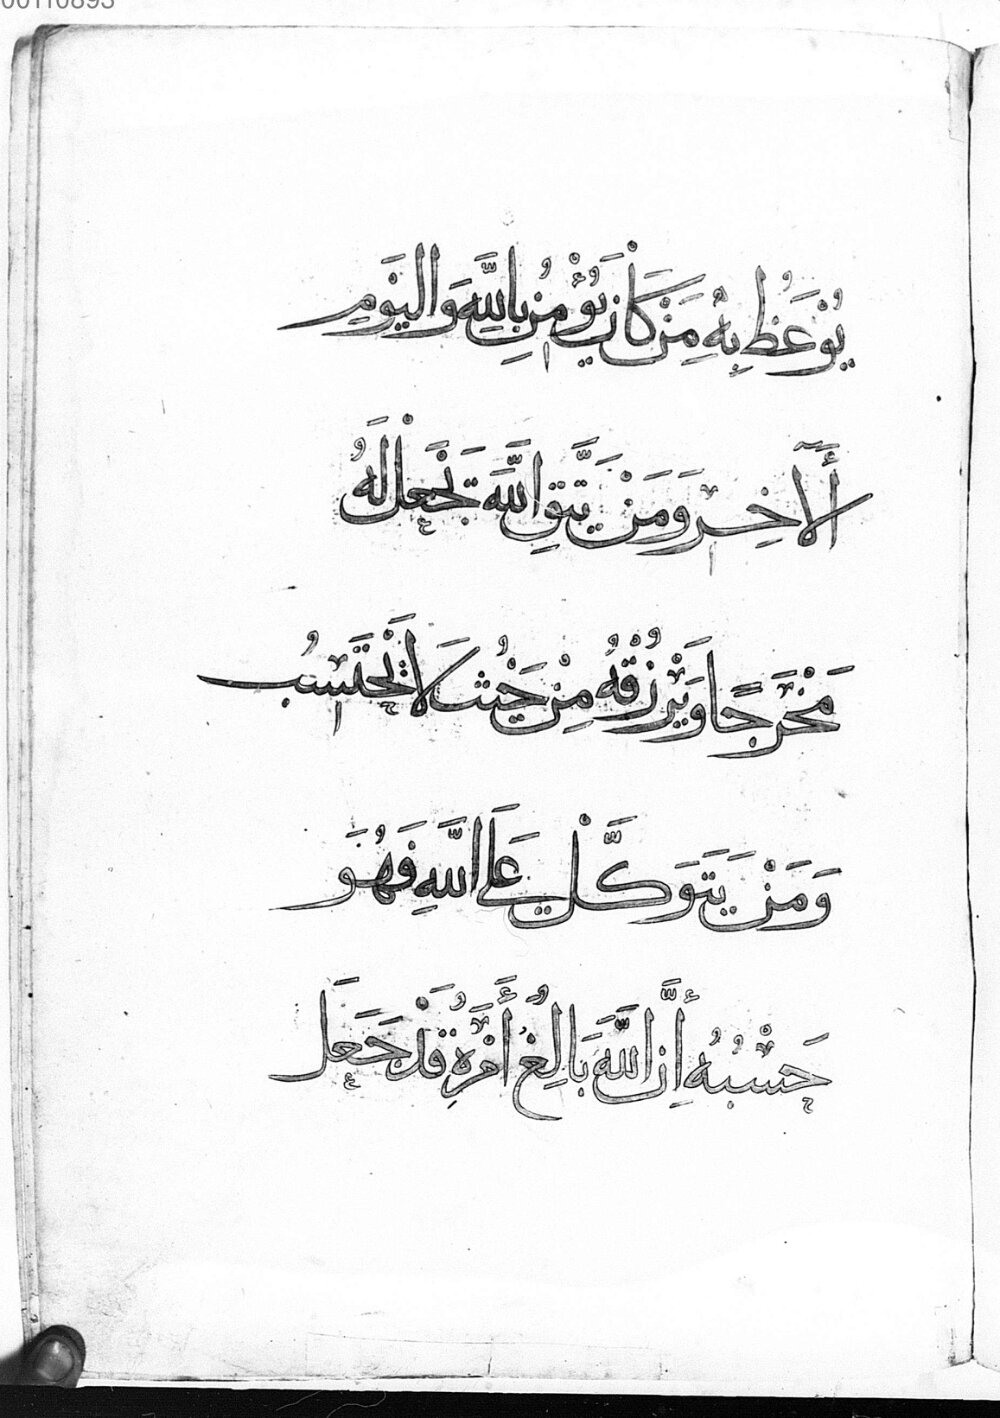 00110893
يُوْعَظُ بِهٖ مَنْ كَانَ يُؤْمِنُ بِاللّٰهِ وَالْيَوْمِ
أَلْآخِرِ وَمَنْ يَتَّقِ اللّٰهَ يَجْعَلْ لَهُ
مَخْرَجًا وَيَرْزُقْهُ مِنْ حَيْثُ لَا يَحْتَسِبُ
وَمَنْ يَتَوَكَّلْ عَلَى اللّٰهِ فَهُوَ
حَسْبُهُ إِنَّ اللّٰهَ بَالِغُ أَمْرِهِ قَدْ جَعَلَ